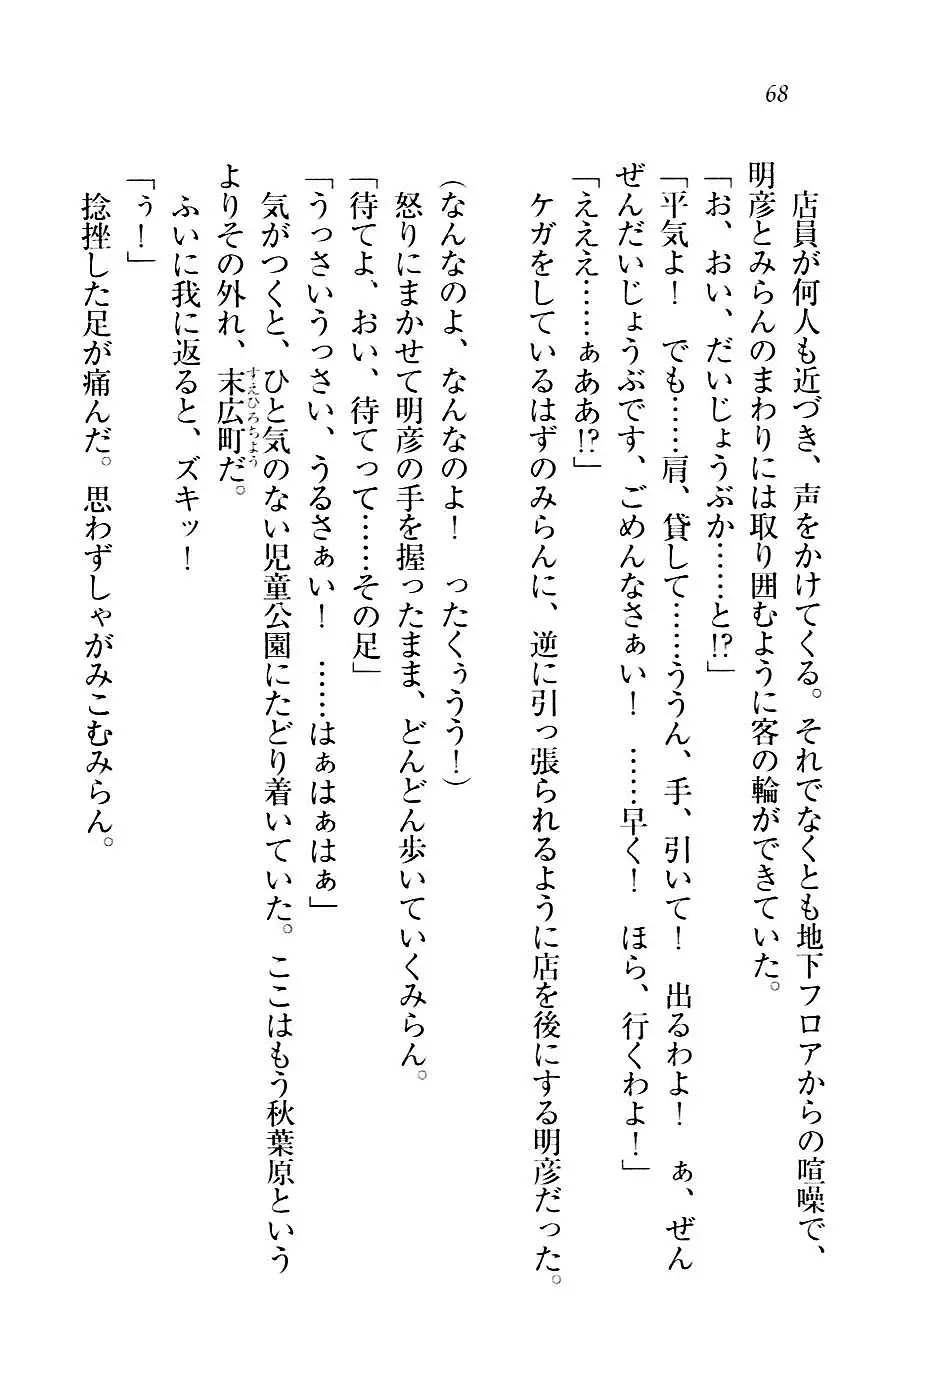 68
　店員が何人も近づき、声をかけてくる。それでなくとも地下フロアからの喧噪で、
明彦とみらんのまわりには取り囲むように客の輪ができていた。
「お、おい、だいじょうぶか……と!?」
「平気よ！　でも……肩、貸して……ううん、手、引いて！　出るわよ！　ぁ、ぜん
ぜんだいじょうぶです、ごめんなさぁい！　……早く！　ほら、行くわよ！」
「えええ……ぁああ!?」
　ケガをしているはずのみらんに、逆に引っ張られるように店を後にする明彦だった。
（なんなのよ、なんなのよ！　ったくぅうう！）
　怒りにまかせて明彦の手を握ったまま、どんどん歩いていくみらん。
「待てよ、おい、待てって……その足」
「うっさいうっさい、うるさぁい！　……はぁはぁはぁ」
　気がつくと、ひと気のない児童公園にたどり着いていた。ここはもう秋葉原という
すえひろちょう
よりその外れ、末広町だ。
　ふいに我に返ると、ズキッ！
「ぅ！」
　捻挫した足が痛んだ。思わずしゃがみこむみらん。